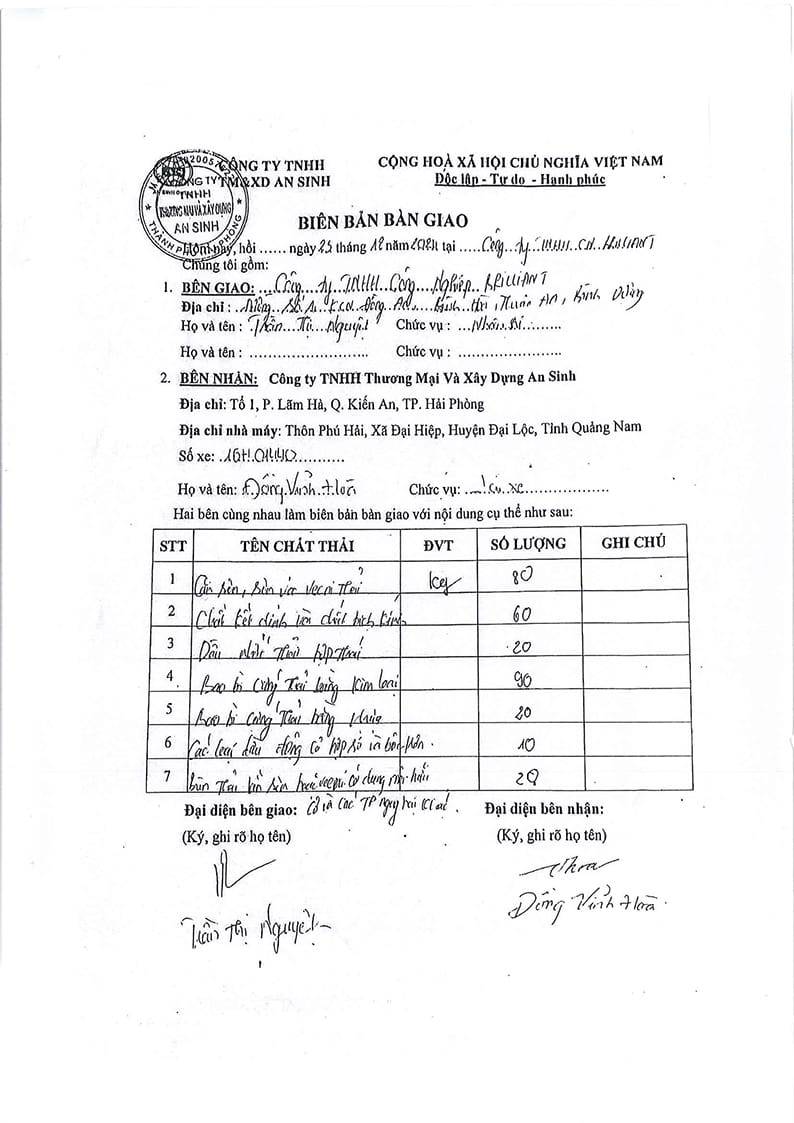 CÔNG TY TNHH
TM&XD AN SINH
CỘNG HOÀ XÃ HỘI CHỦ NGHĨA VIỆT NAM
Độc lập - Tự do - Hạnh phúc
CÔNG TY
TNHH
THƯƠNG MẠI VÀ XÂY DỰNG
AN SINH
BIÊN BẢN BÀN GIAO
Hôm nay, hồi ...... ngày 23 tháng 12 năm tại ..... Công ty TNHH CN
Chúng tôi gồm:
1. BÊN GIAO: ...Công ty TNHH Công Nghiệp BRILLIANT
Địa chỉ : An, Bình Dương
Họ và tên : Trần Thị Nguyệt Chức vụ : ...Nhân
Họ và tên : ........................ Chức vụ : .....................
2. BÊN NHẬN: Công ty TNHH Thương Mại Và Xây Dựng An Sinh
Địa chỉ: Tổ 1, P. Lãm Hà, Q. Kiến An, TP. Hải Phòng
Địa chỉ nhà máy: Thôn Phú Hải, Xã Đại Hiệp, Huyện Đại Lộc, Tỉnh Quảng Nam
Số xe: .16H.01440..........
Họ và tên: Đồng Vĩnh Hoà Chức vụ: Lái xe
Hai bên cùng nhau làm biên bản bàn giao với nội dung cụ thể như sau:
STT TÊN CHẤT THẢI ĐVT SỐ LƯỢNG GHI CHÚ
1 Cặn sơn, sơn và vecni thải kg 80
2 Chất kết dính và chất bịt kín 60
3 Dầu thải 20
4 Bao bì cứng thải bằng kim loại 90
5 Bao bì cứng thải bằng nhựa 20
6 Các loại dầu động cơ hộp số và bôi trơn 10
7 Bùn thải lẫn sơn hoặc vecni có dung môi hữu 20
Đại diện bên giao: cơ và các TP nguy hại khác. Đại diện bên nhận:
(Ký, ghi rõ họ tên) (Ký, ghi rõ họ tên)
Trần Thị Nguyệt Đồng Vĩnh Hoà